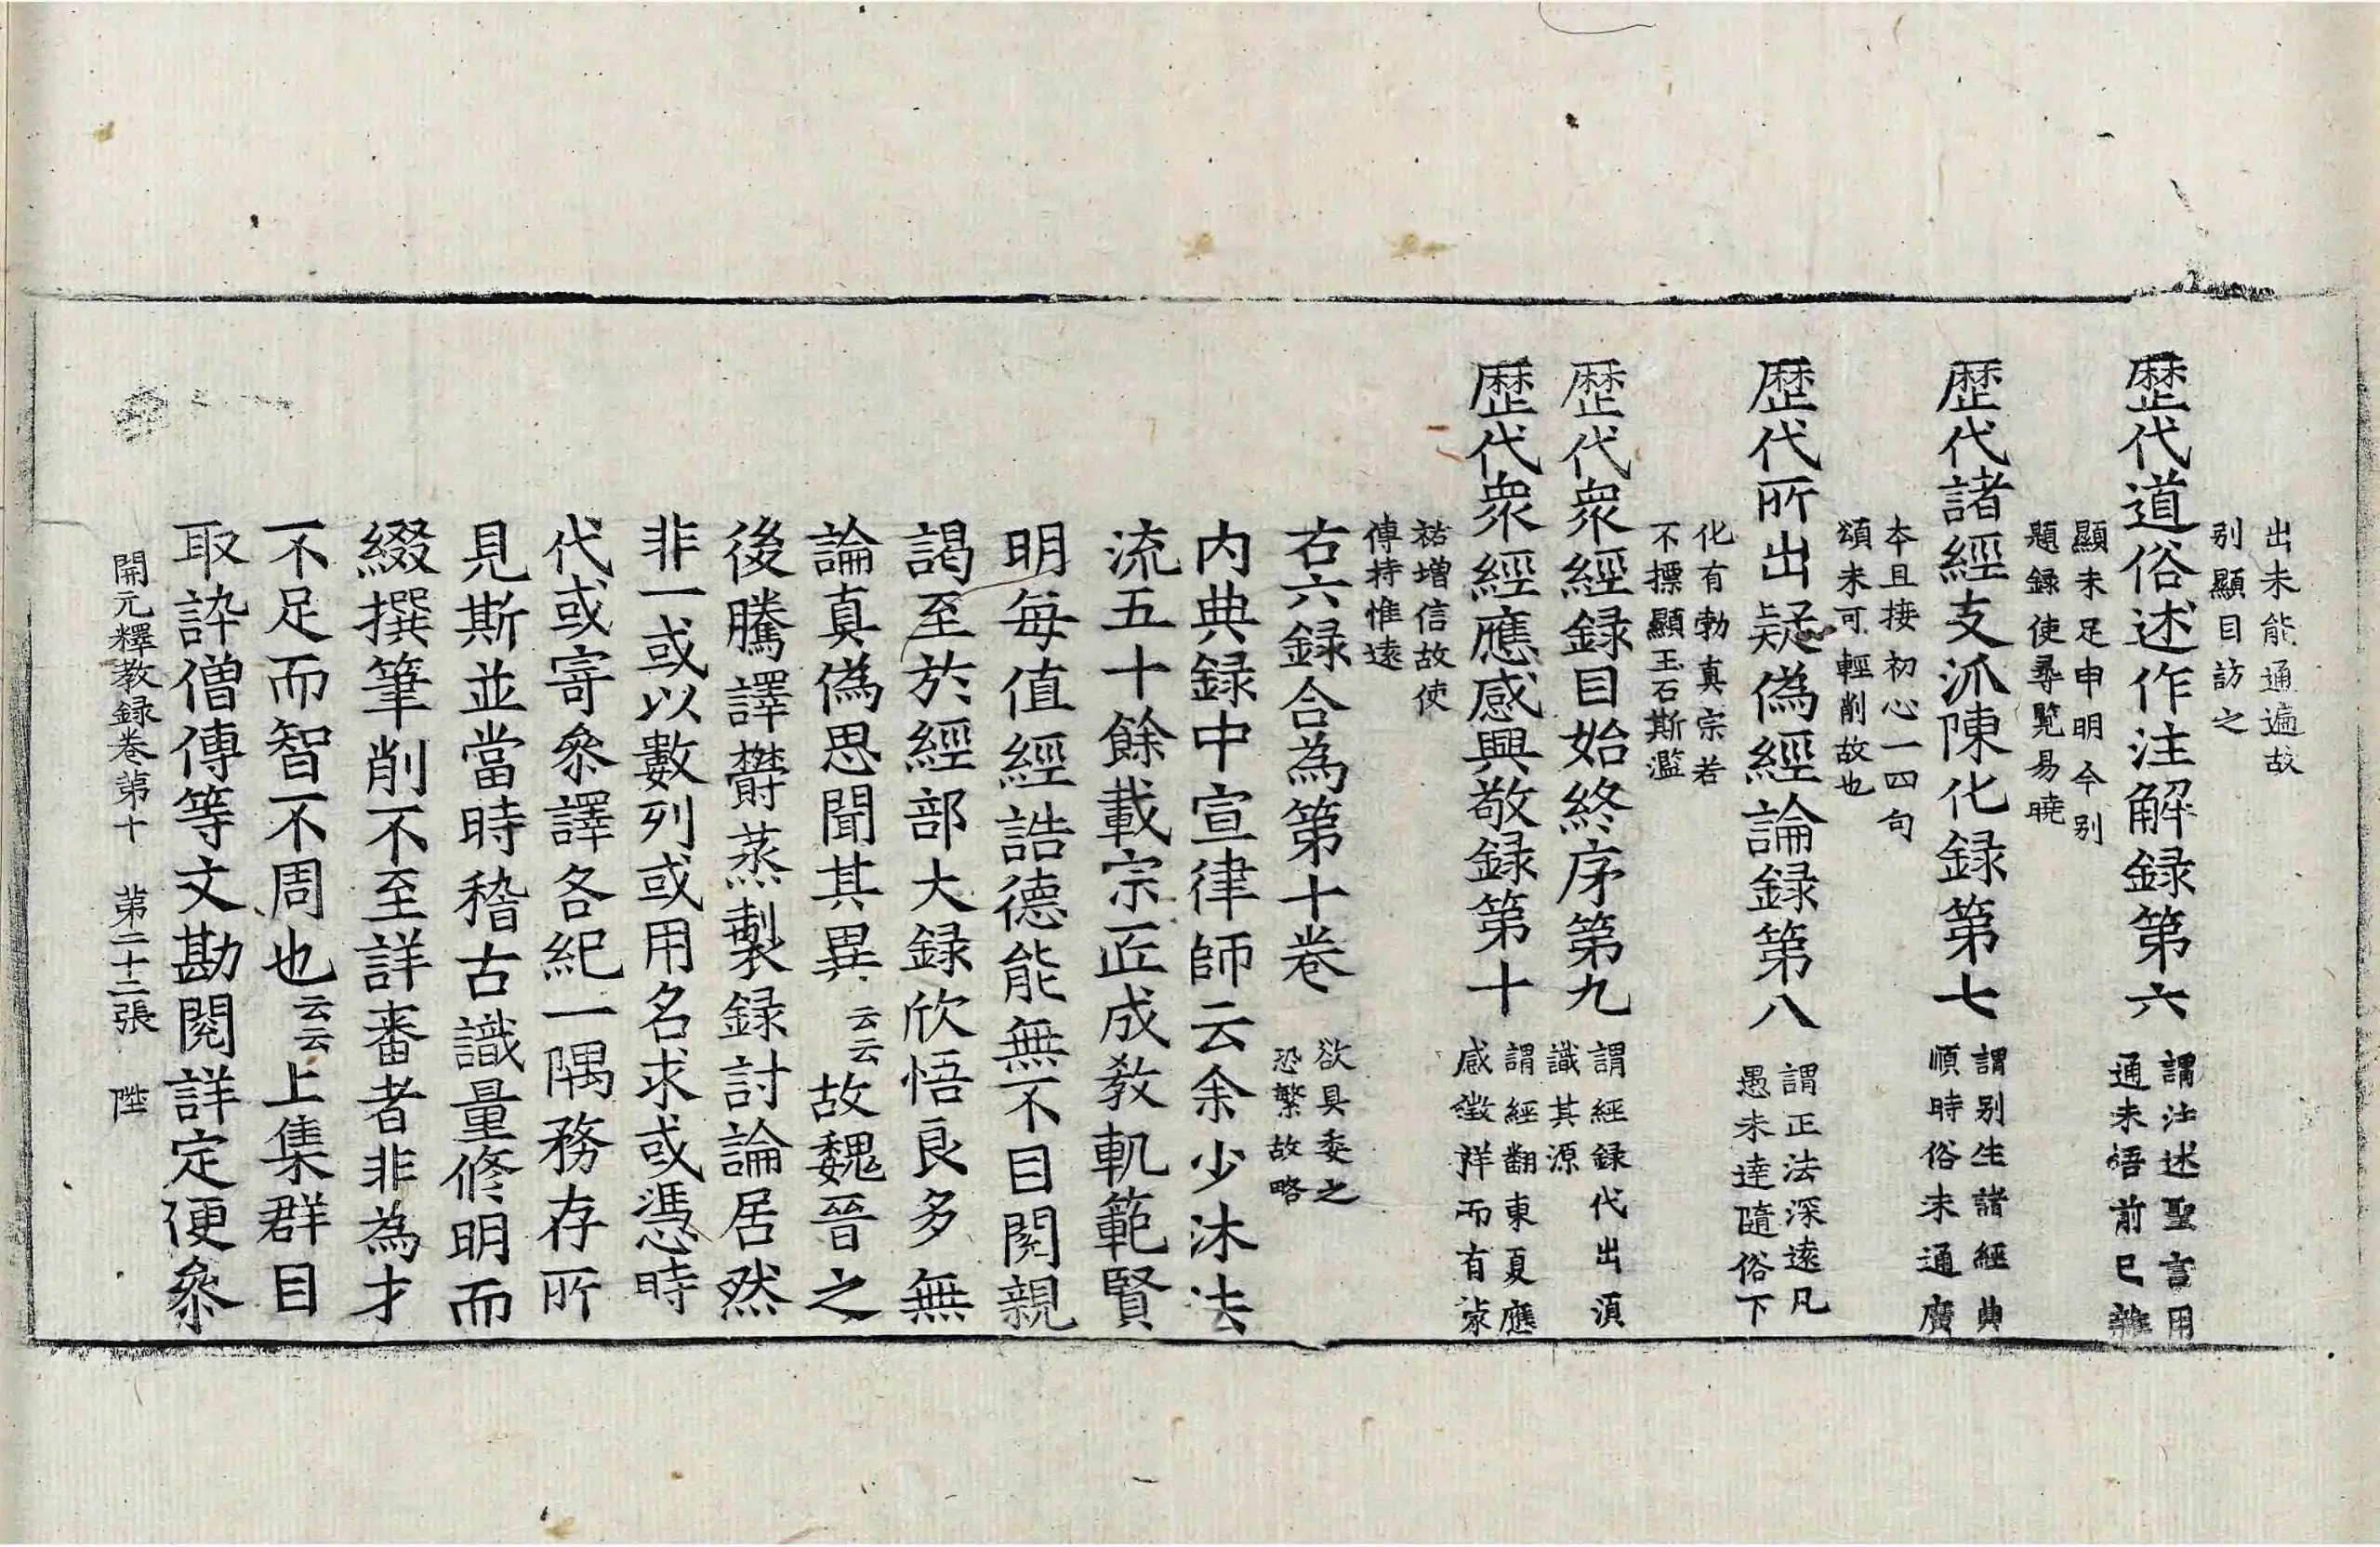 出未能通遍故
别顯目訪之
歷代道俗述作注解録第六
謂注述聖言用
通未悟前已雖
顯未足申明今别
題録使尋覽易曉
歷代諸經支派陳化録第七
謂别生諸經典
順時俗未通廣
本且接初心一四句
頌未可輕削故也
歷代所出疑偽經論録第八
謂正法深遠凡
愚未達隨俗下
化有勃真宗若
不摽顯玉石斯濫
歷代衆經録目始終序第九
謂經録代出須
識其源
歷代衆經應感興敬録第十
謂經翻東夏應
感徵祥而有蒙
祐增信故使
傳持惟遠
右六録合為第十卷
欲具委之
恐繁故略
内典録中宣律師云余少沐法
流五十餘載宗匠成教軌範賢
明每值經誥德能無不目閱親
謁至於經部大録欣悟良多無
論真偽思聞其異云云故魏晉之
後騰譯欝蒸製録討論居然
非一或以數列或用名求或憑時
代或寄叅譯各紀一隅務存所
見斯並當時稽古識量修明而
綴撰筆削不至詳審者非為才
不足而智不周也云云上集群目
取訡僧傳等文勘閱詳定便叅
開元釋教録卷第十 第二十二張 陛